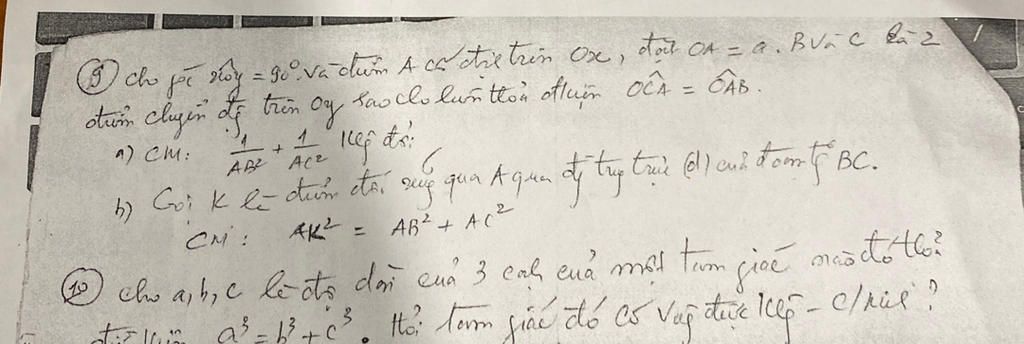 ⑨ Cho góc xôy = 90°. Và điểm A cố định trên Ox, đặt OA = a. B và C là 2
điểm chuyển động trên Oy sao cho luôn thỏa điều kiện OĈA = OÂB.
a) CM: 1/AB² + 1/AC² không đổi
b) Gọi K là điểm đối xứng qua A qua đg trung trực (d) của đoạn thg BC.
CM: AK² = AB² + AC²
⑩ Cho a, b, c là độ dài của 3 cạnh của một tam giác nào đó thỏa
điều kiện a³ = b³ + c³. Hỏi tam giác đó có vuông được không - c/minh?